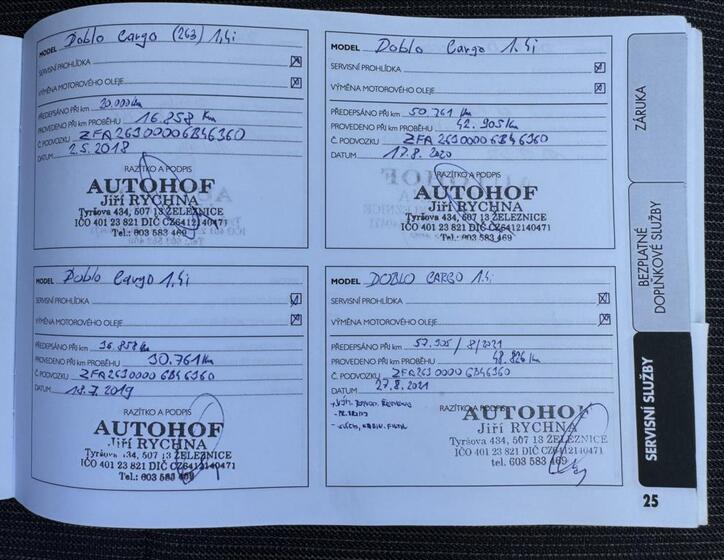 MODEL Doblo Cargo (263) 1,4i
SERVISNÍ PROHLÍDKA
VÝMĚNA MOTOROVÉHO OLEJE
PŘEDEPSÁNO PŘI km 20.000 Km
PROVEDENO PŘI KM PROBĚHU 16.858 Km
Č. PODVOZKU ZFA26300006B46360
DATUM 2.5.2018
RAZÍTKO A PODPIS
AUTOHOF
Jiří RYCHNA
Tyršova 434, 507 13 ŽELEZNICE
IČO 401 23 821 DIČ CZ6412140471
Tel.: 603 583 469
MODEL Doblo Cargo 1.4i
SERVISNÍ PROHLÍDKA
VÝMĚNA MOTOROVÉHO OLEJE
PŘEDEPSÁNO PŘI km 50.761 Km
PROVEDENO PŘI KM PROBĚHU 42.905 Km
Č. PODVOZKU ZFA26300006B46360
DATUM 17.8.2020
RAZÍTKO A PODPIS
AUTOHOF
Jiří RYCHNA
Tyršova 434, 507 13 ŽELEZNICE
IČO 401 23 821 DIČ CZ6412140471
Tel.: 603 583 469
MODEL Doblo Cargo 1.4i
SERVISNÍ PROHLÍDKA
VÝMĚNA MOTOROVÉHO OLEJE
PŘEDEPSÁNO PŘI km 36.858 Km
PROVEDENO PŘI KM PROBĚHU 30.761 Km
Č. PODVOZKU ZFA2630000 6B46360
DATUM 18.7.2019
RAZÍTKO A PODPIS
AUTOHOF
Jiří RYCHNA
434, 507 13 ŽELEZNICE
IČO 401 23 821 DIČ CZ6412140471
Tel.: 603 583 469
MODEL DOBLO CARGO 1.4i
SERVISNÍ PROHLÍDKA
VÝMĚNA MOTOROVÉHO OLEJE
PŘEDEPSÁNO PŘI km 57.905 / 8/2021
PROVEDENO PŘI KM PROBĚHU 48.826 Km
Č. PODVOZKU ZFA2630000 6B46360
DATUM 27.8.2021
RAZÍTKO A PODPIS
AUTOHOF
Jiří RYCHNA
Tyršova 434, 507 13 ŽELEZNICE
IČO 401 23 821 DIČ CZ6412140471
tel. 603 583 469
ZÁRUKA
BEZPLATNÉ
DOPLŇKOVÉ SLUŽBY
SERVISNÍ SLUŽBY
25